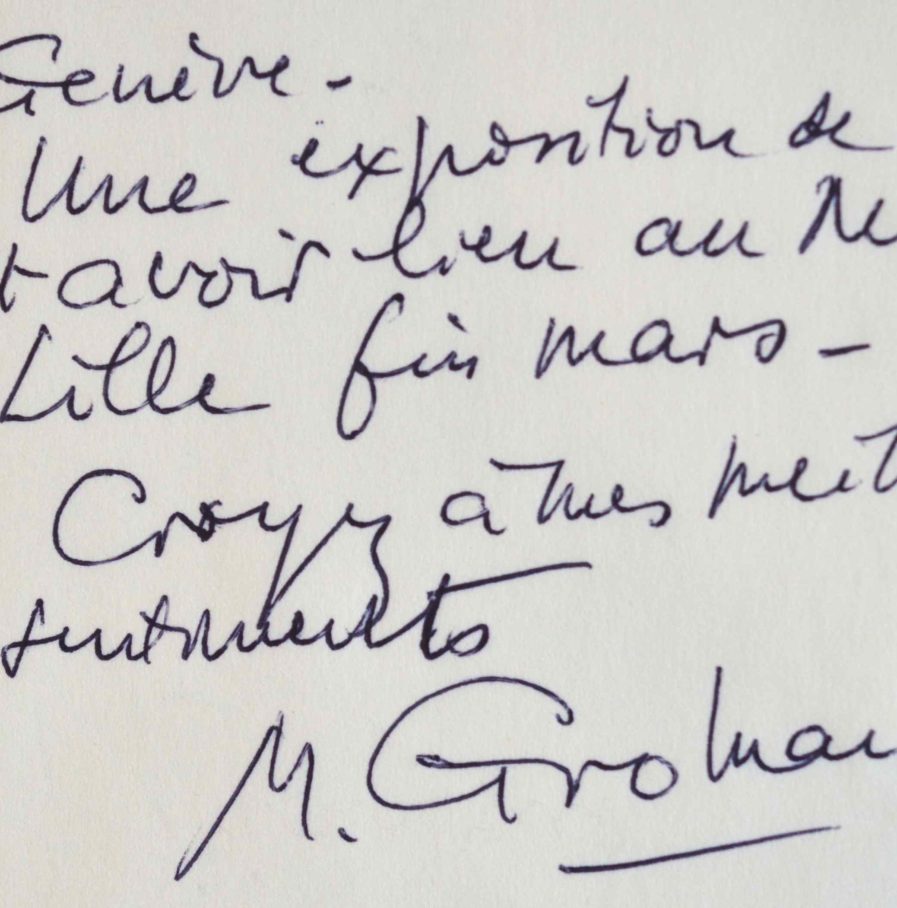 Genève -
Une exposition de
t avoir lieu au
Lille fin mars -
Croyez à mes meil
sentiments
M. Gromai